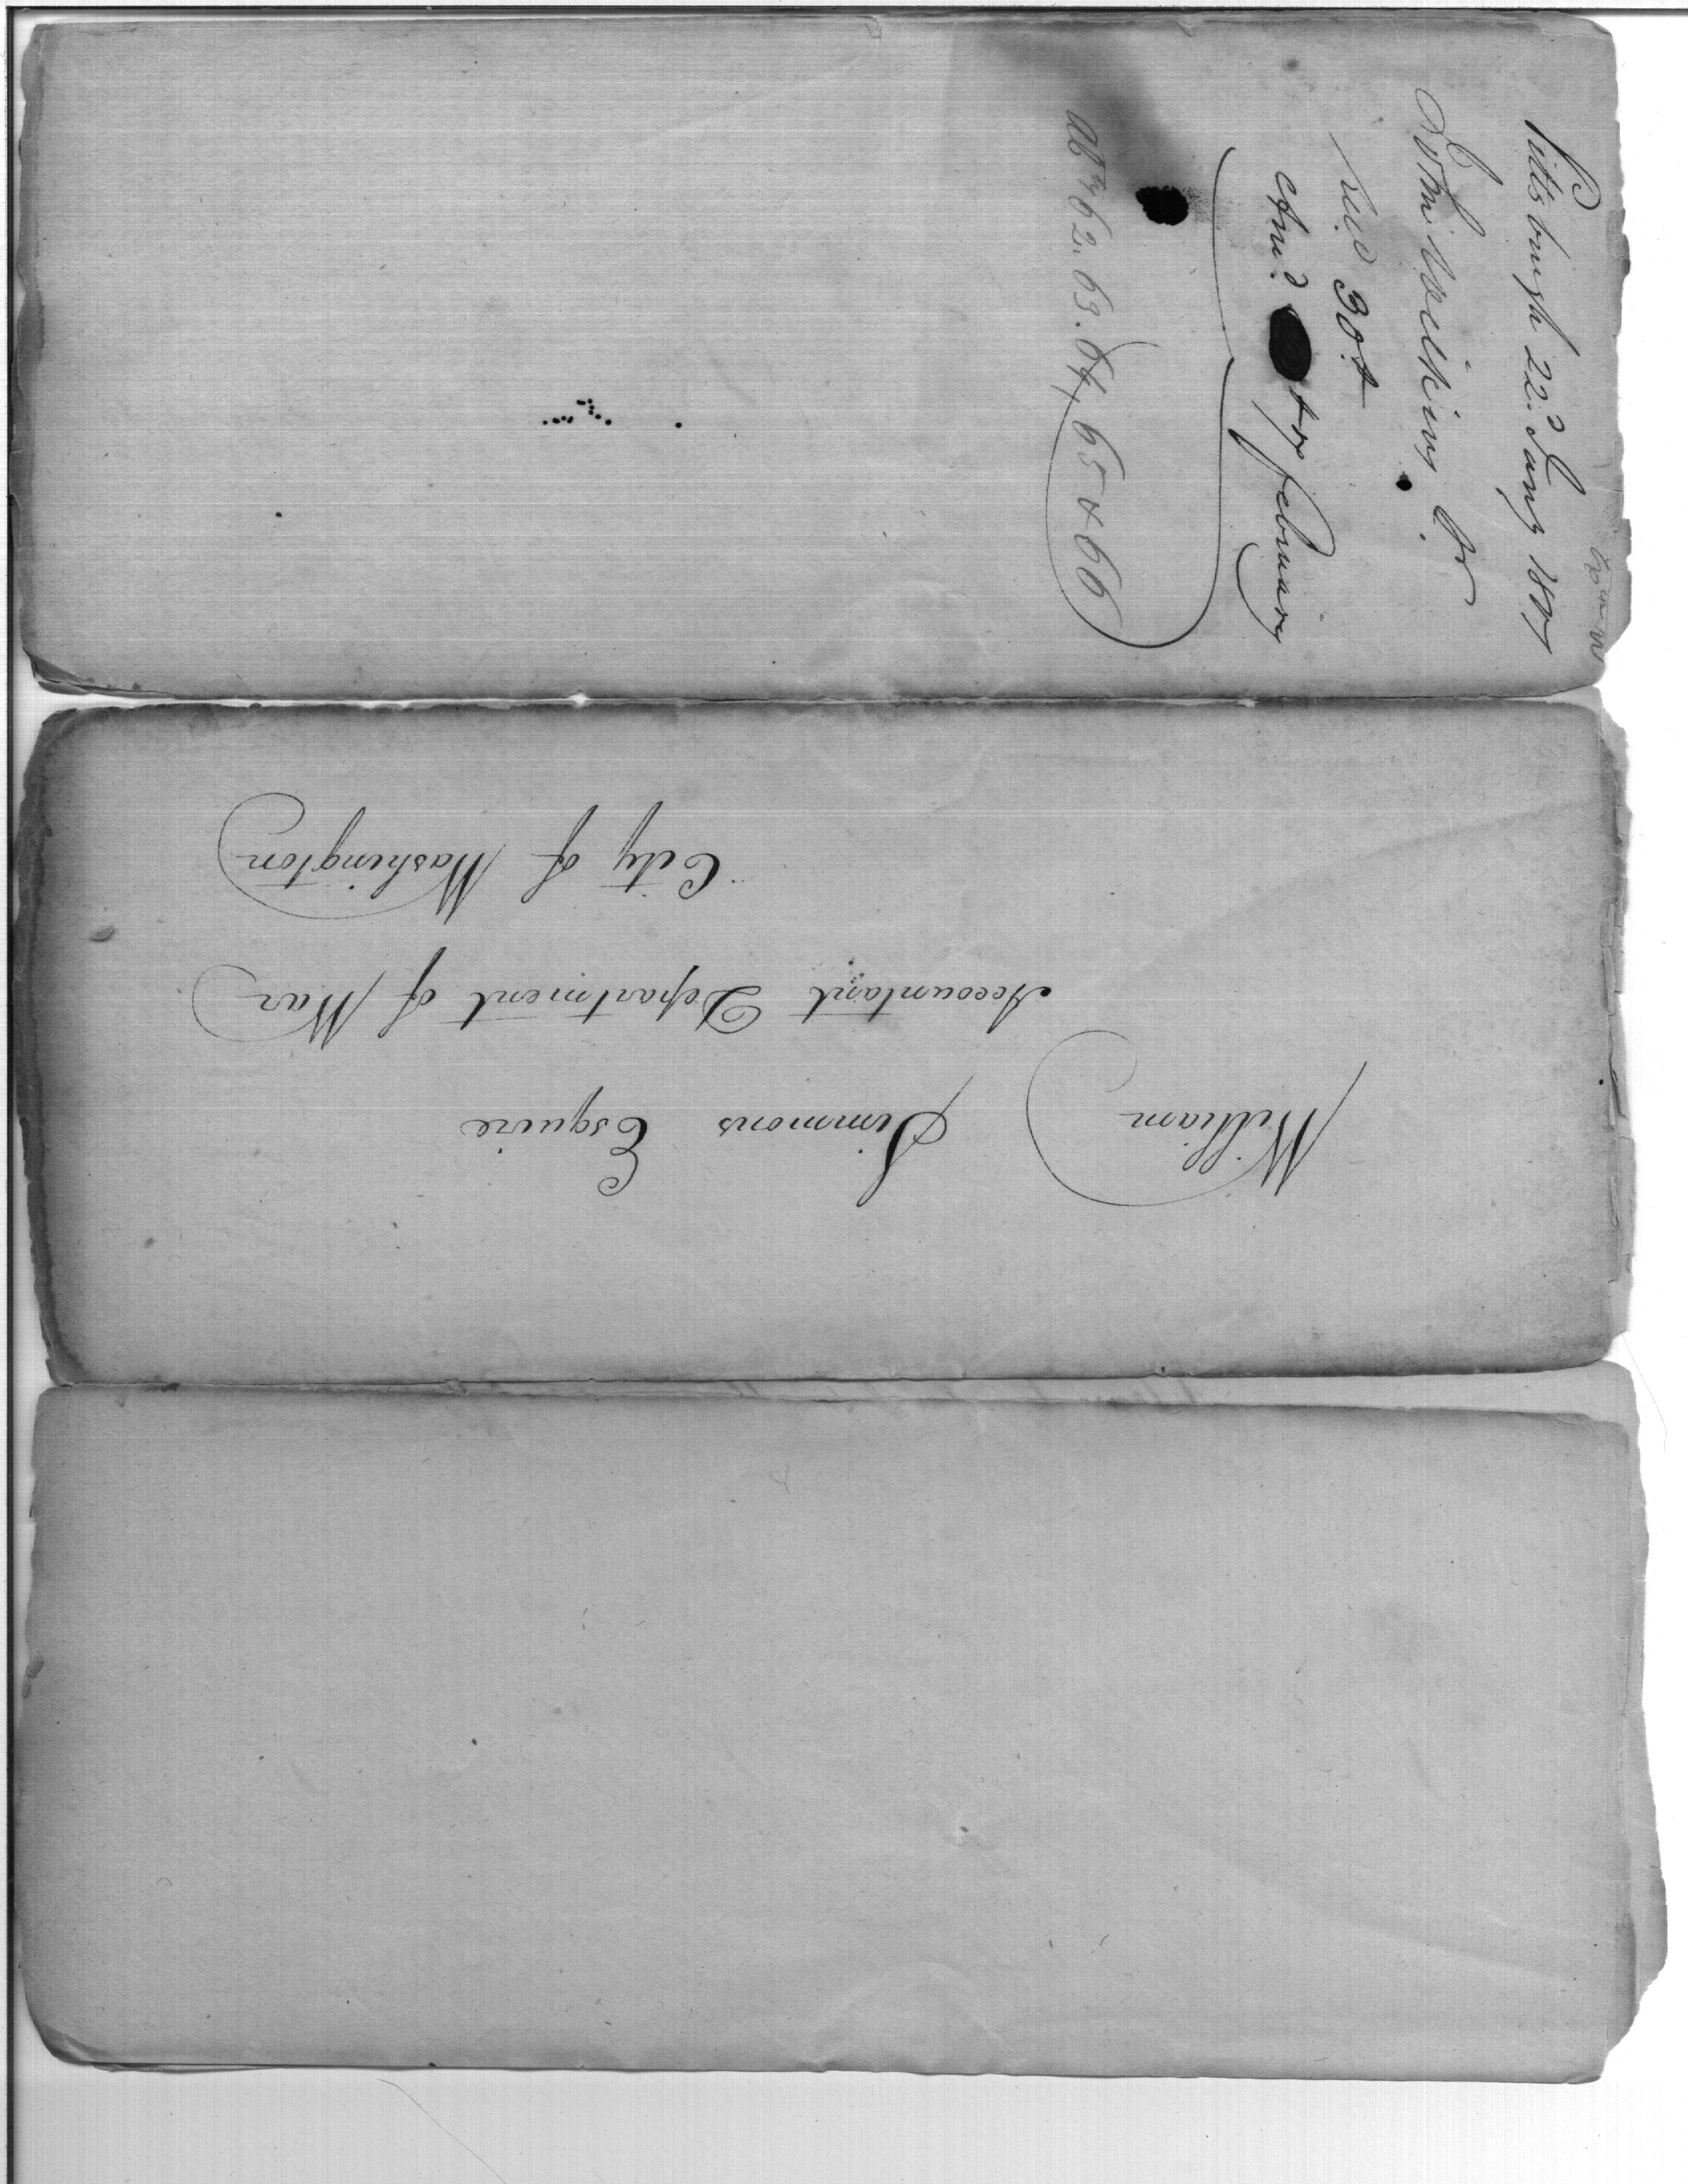 Pittsburgh 22.d Jany 1801
John Wilkins Jr
rec.d 30.th
Ans.d 4 february
ab.ts 62. 63. 64, 65 & 66
William Simmons Esquire
Accountant Department of War
City of Washington